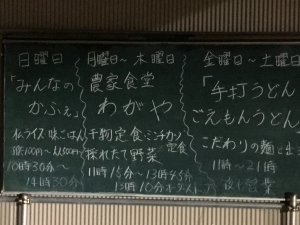 日曜日
「みんなの
かふぇ」
10時30分〜
14時30分
月曜日〜木曜日
農家食堂
わがや
干物定食・ミンチカツ
定食
採れたて野菜
11時15分〜13時45分
金曜日〜土曜日
「手打うどん
ごえもんうどん
こだわりの麺と出
11時〜21時